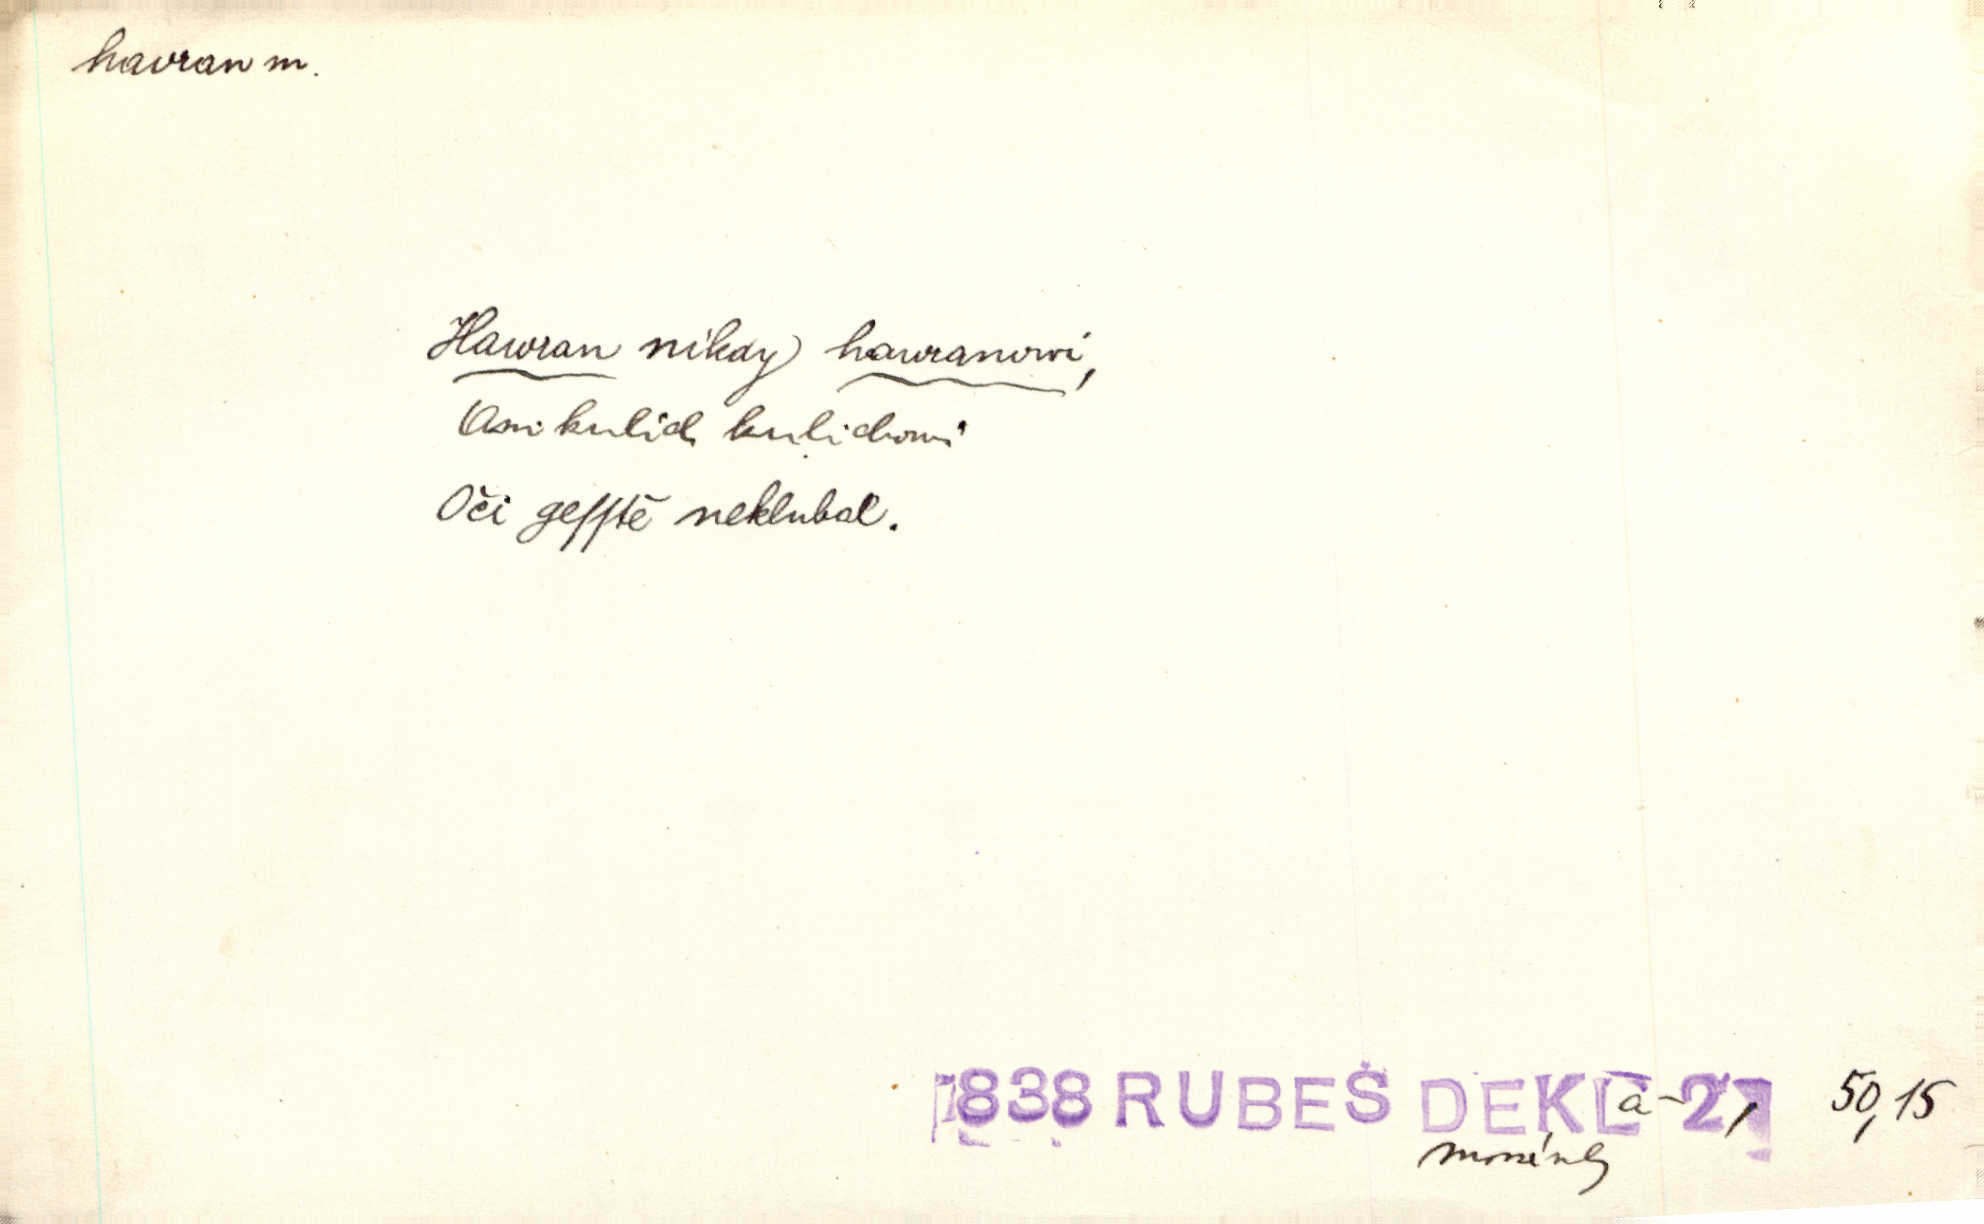 havran m.
Hawran nikdy hawranowi,
Ani kulich kulichowi
Oči gesstě neklubal.
1838 RUBEŠ DEKL a-2, 50,15